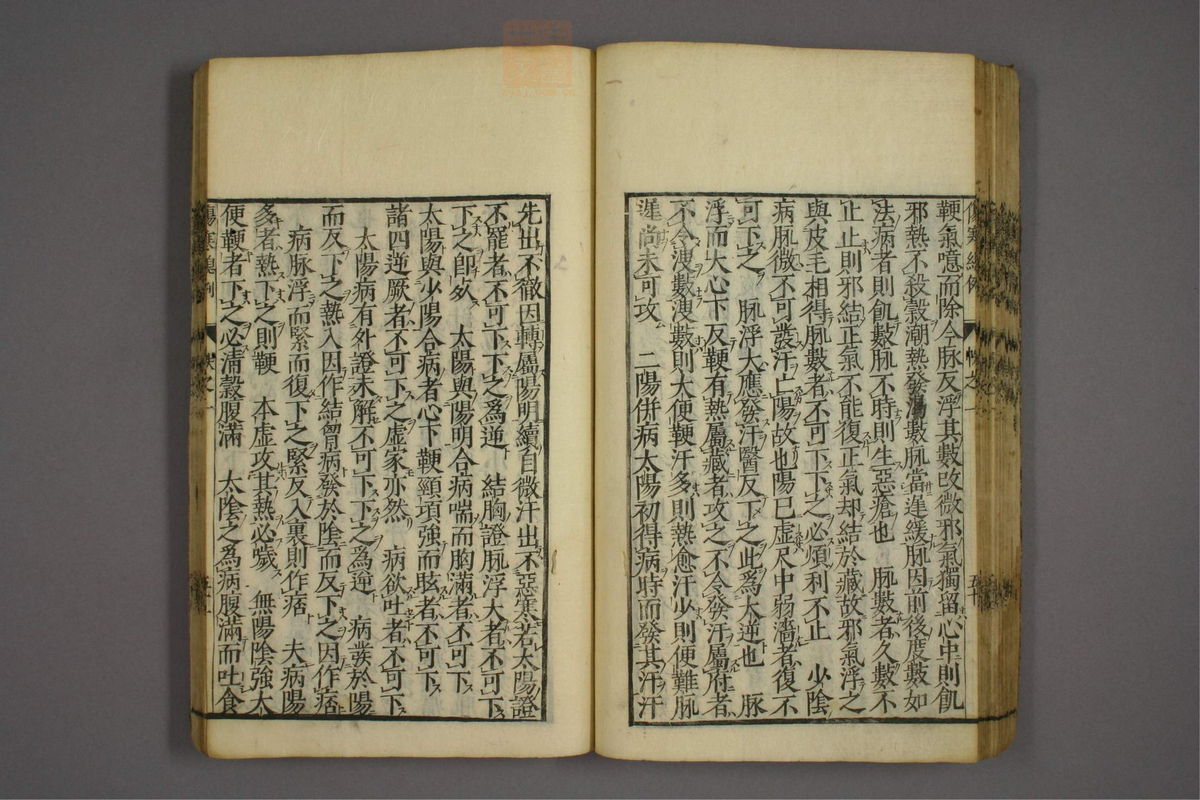 鞕氣噫而除今脉反浮其數改微邪氣獨留心中則飢
邪熱不殺穀潮熱發渴數脉當遲緩脉因前後度數如
法病者則飢數脉不時則生惡瘡也　脉數者久數不
止止則邪結正氣不能復正氣却結於藏故邪氣浮之
與皮毛相得脉數者不可下下之必煩利不止　少陰
病脉微不可發汗亡陽故也陽已虛尺中弱濇者復不
可下之　脉浮大應發汗醫反下之此爲大逆也　脉
浮而大心下反鞕有熱屬藏者攻之不令發汗屬府者
不令溲數溲數則大便鞕汗多則熱愈汗少則便難脉
遲尚未可攻　二陽併病太陽初得病時而發其汗汗
先出不徹因轉屬陽明續自微汗出不惡寒若太陽證
不罷者不可下下之爲逆　結胸證脉浮大者不可下
下之即死　太陽與陽明合病喘而胸滿者不可下
太陽與少陽合病者心下鞕頸項強而眩者不可下
諸四逆厥者不可下之虛家亦然　病欲吐者不可下
太陽病有外證未解不可下下之爲逆　病發於陽
而反下之熱入因作結胷病發於陰而反下之因作痞
病脉浮而緊而復下之緊反入裏則作痞　夫病陽
多者熱下之則鞕　本虛攻其熱必噦　無陽陰強大
便鞕者下之必淸穀腹滿　太陰之爲病腹滿而吐食